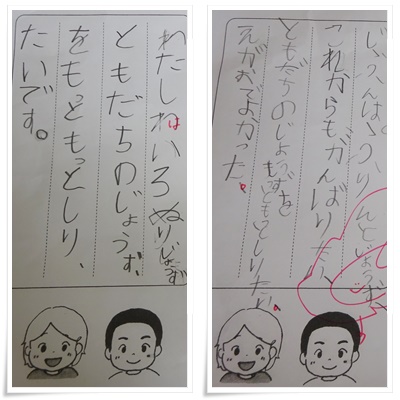 わたしわはいろぬりじょうず
ともだちのじょうず、
をもっともっとしり、
たいです。
じぶんは、りんとじょうず、
これからもがんばりたい、
ともだちのじょうずをもっともっとしりたい。
えがおでよかった。